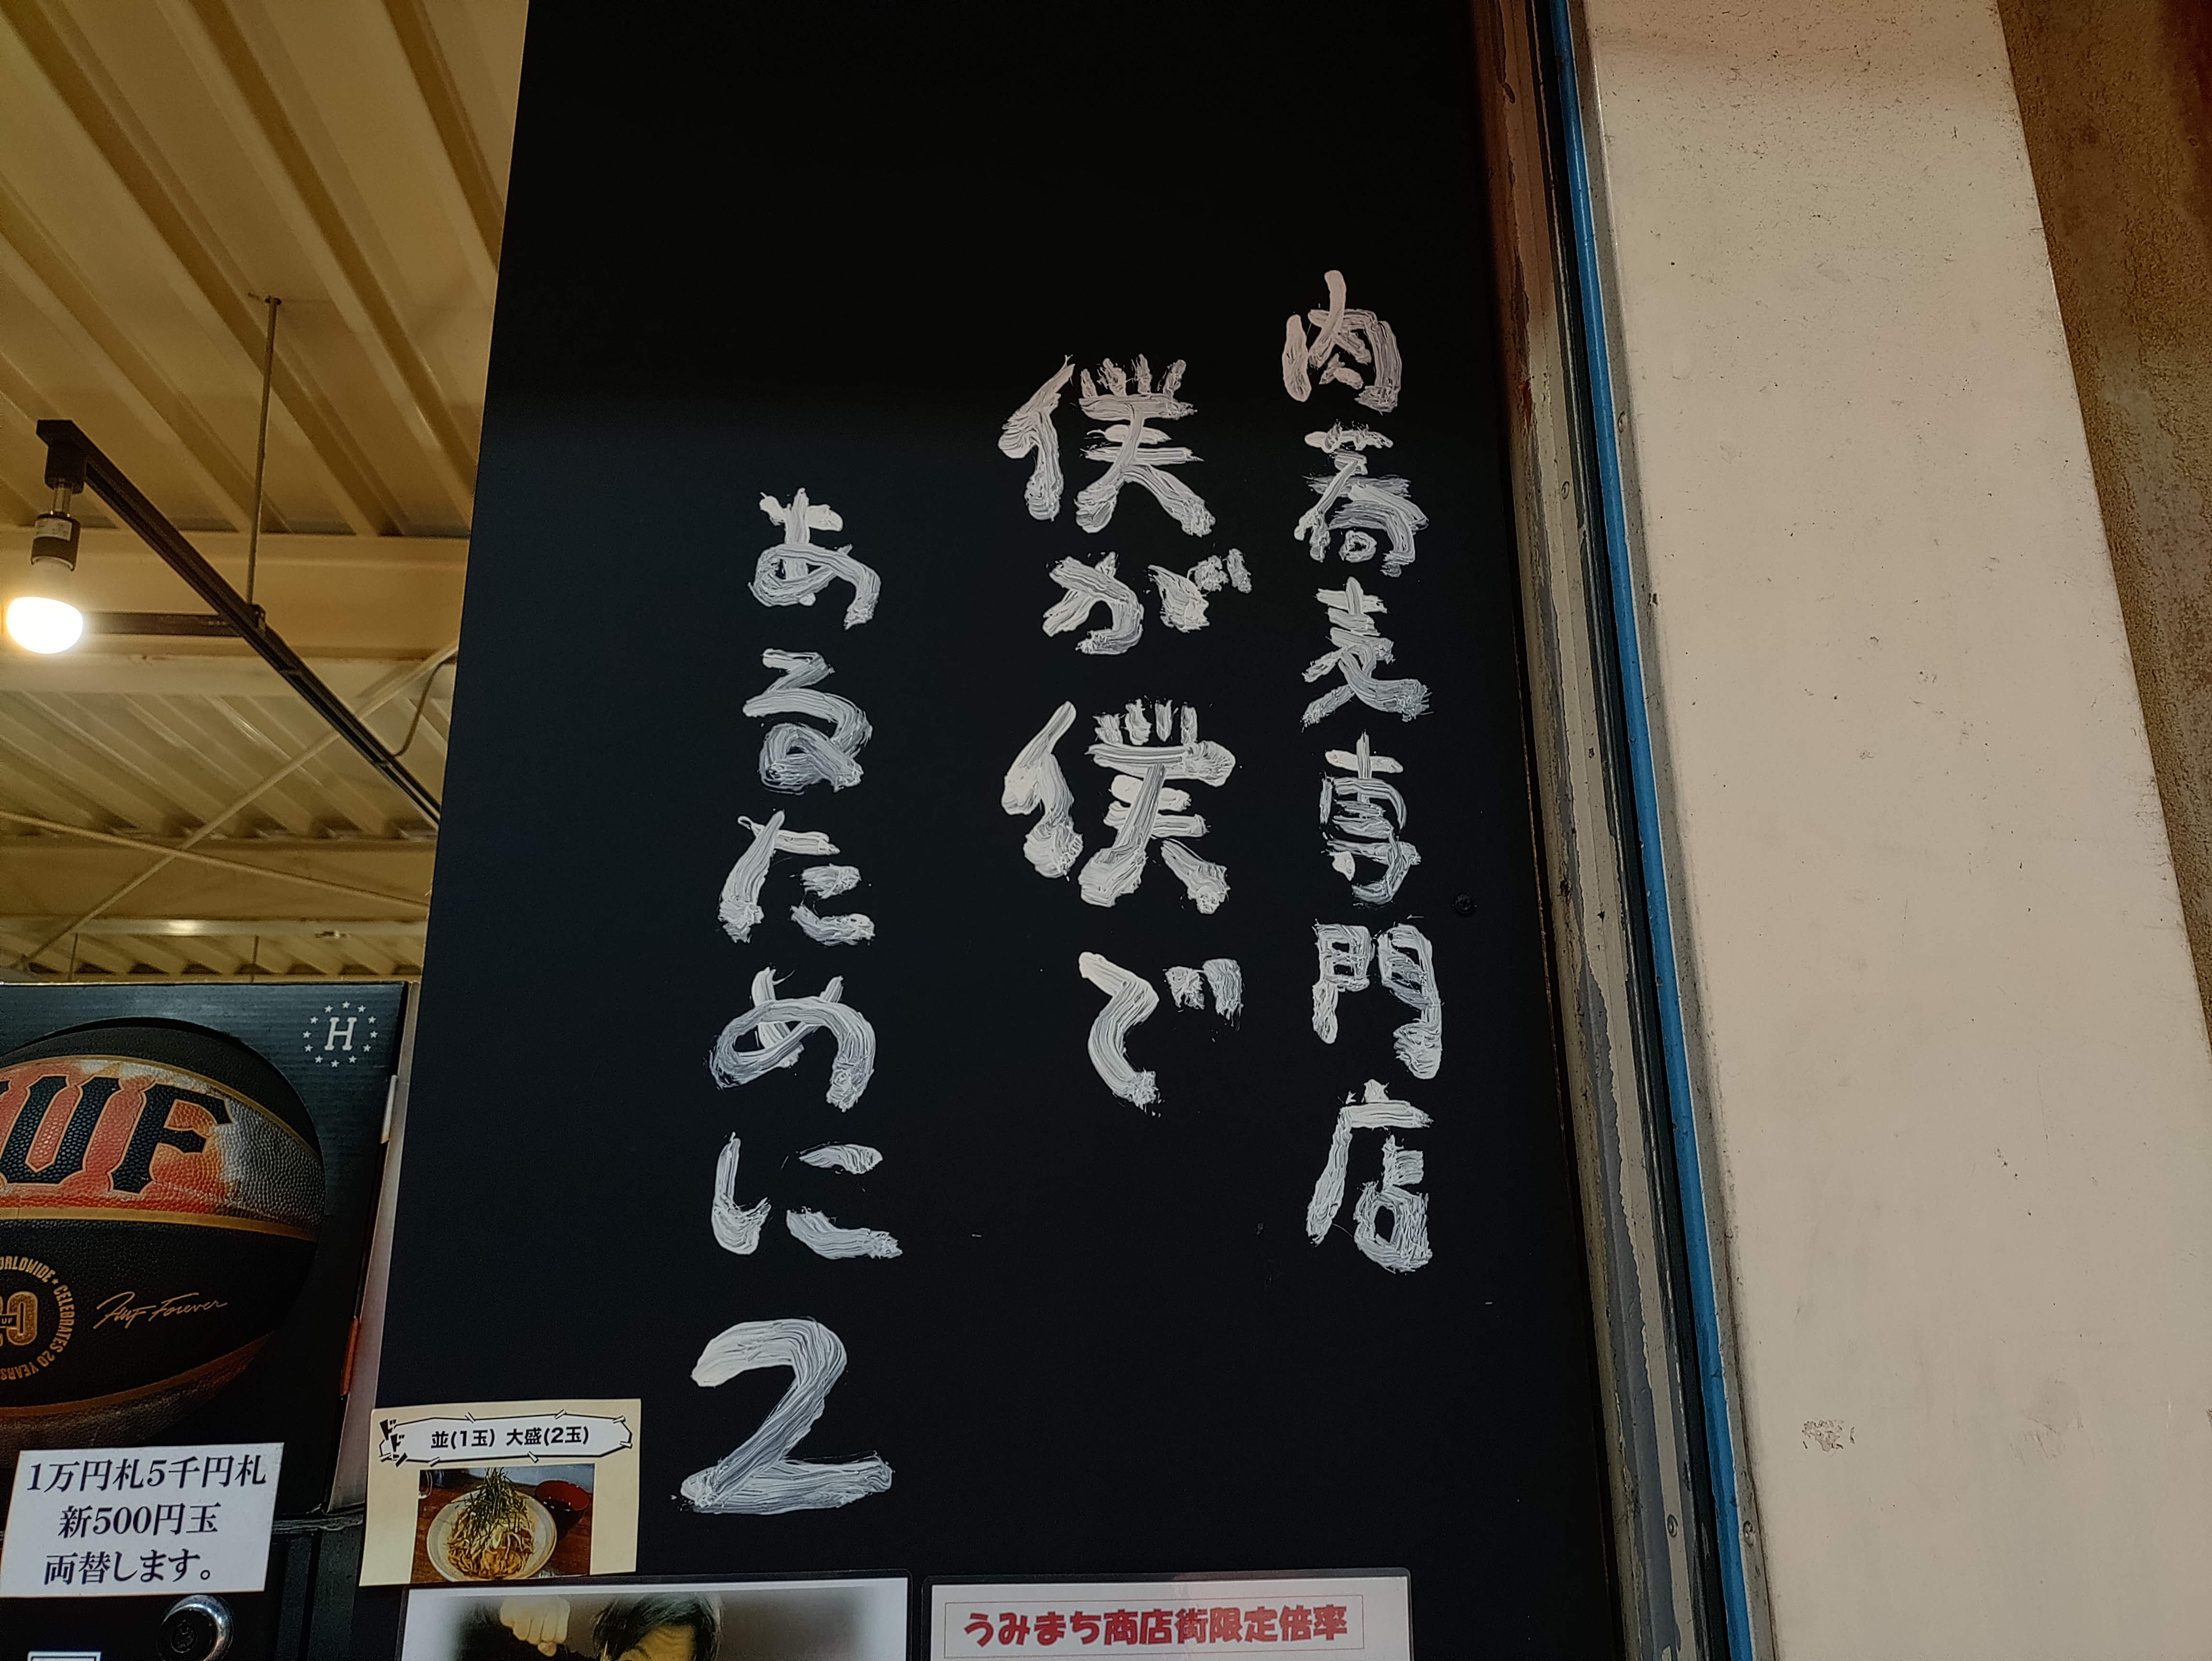 肉蕎麦専門店
僕が僕で
あるために2
H
UF
WORLDWIDE • CELEBRATES 20 YEARS
Huf Forever
ドドン
並(1玉) 大盛(2玉)
1万円札5千円札
新500円玉
両替します。
うみまち商店街限定倍率